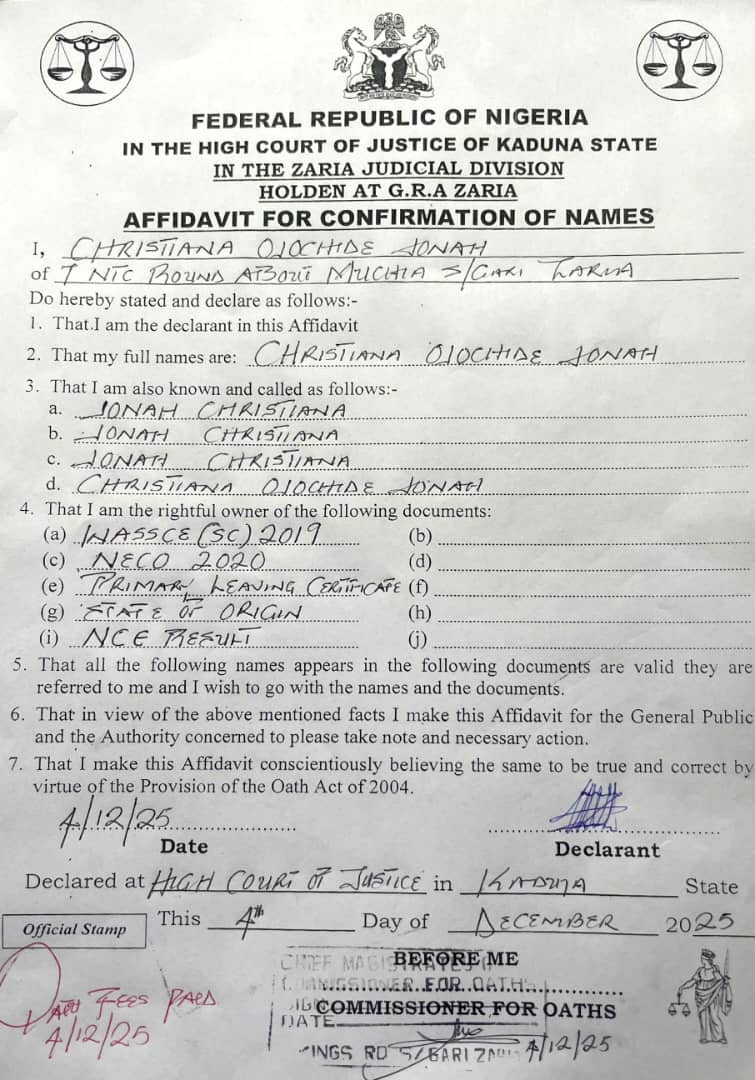 FEDERAL REPUBLIC OF NIGERIA
IN THE HIGH COURT OF JUSTICE OF KADUNA STATE
IN THE ZARIA JUDICIAL DIVISION
HOLDEN AT G.R.A ZARIA
AFFIDAVIT FOR CONFIRMATION OF NAMES
I, CHRISTIANA OJOCHIDE JONAH
of 7 NTC ROUND ABOUT MUCHIA S/GARI ZARIA
Do hereby stated and declare as follows:-
1. That I am the declarant in this Affidavit
2. That my full names are: CHRISTIANA OJOCHIDE JONAH
3. That I am also known and called as follows:-
a. JONAH CHRISTIANA
b. JONAH CHRISTIANA
c. JONAH CHRISTIANA
d. CHRISTIANA OJOCHIDE JONAH
4. That I am the rightful owner of the following documents:
(a) WASSCE (SC) 2019 (b)
(c) NECO 2020 (d)
(e) PRIMARY LEAVING CERTIFICATE (f)
(g) STATE OF ORIGIN (h)
(i) NCE RESULT (j)
5. That all the following names appears in the following documents are valid they are
referred to me and I wish to go with the names and the documents.
6. That in view of the above mentioned facts I make this Affidavit for the General Public
and the Authority concerned to please take note and necessary action.
7. That I make this Affidavit conscientiously believing the same to be true and correct by
virtue of the Provision of the Oath Act of 2004.
4/12/25
Date
Declarant
Declared at HIGH COURT OF JUSTICE in KADUNA State
This 4th Day of DECEMBER 2025
Official Stamp
CHIEF
BEFORE ME
FOR OATHS
COMMISSIONER FOR OATHS
DATE
RD S/GARI
4/12/25
OATH FEES PAID
4/12/25